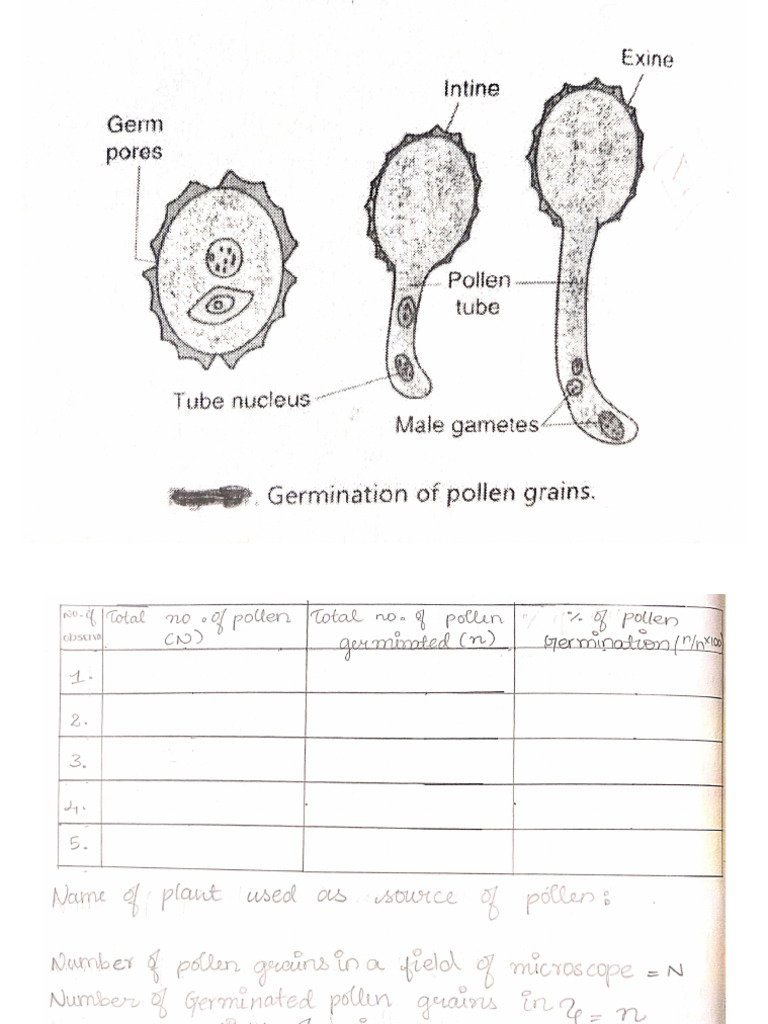 Exine
Intine
Germ
pores
Pollen
tube
Tube nucleus
Male gametes
. Germination of pollen grains.
No. of
observa
Total no. of pollen
(N)
Total no. of pollen
germinated (n)
% of pollen
Germination (n/n×100)
1.
2.
3.
4.
5.
Name of plant used as source of pollen:
Number of pollen grains in a field of microscope = N
Number of Germinated pollen grains in = n